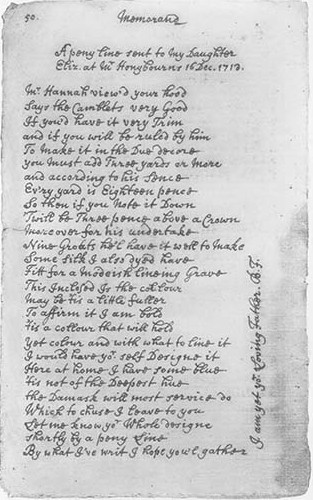 50. Memorand
A peny line sent to My Daughter
Eliz. at Mr Honybourns 16 Dec. 1713.
Mr Hannah view'd your hood
Says the Camblets very Good
If you'd have it very Trim
and if you will be ruled by him
To make it in the Due decore
you Must add Three yards or More
and according to his Sence
Ev'ry yard is Eighteen pence
So then if you Note it Down
Twill be Three pence above a Crown
Moreover for his undertake
Nine Groats he'l have it well to Make
Some Silk I also dyed have
Fitt for a Modeish lineing Grave
This Inclosed Is the collour
May be tis a little fuller
To affirm it I am bold
tis a collour that will hold
Yet colour and with what to line it
I would have yor self Designe it
Here at home I have some blue
tis not of the Deepest hue
the Damask will most service do
Which to chuse I leave to you
Let me know yor Whole designe
shortly by a peny Line
By what I've writ I hope you'l gather
I am yet yor Loving Father. B.F.